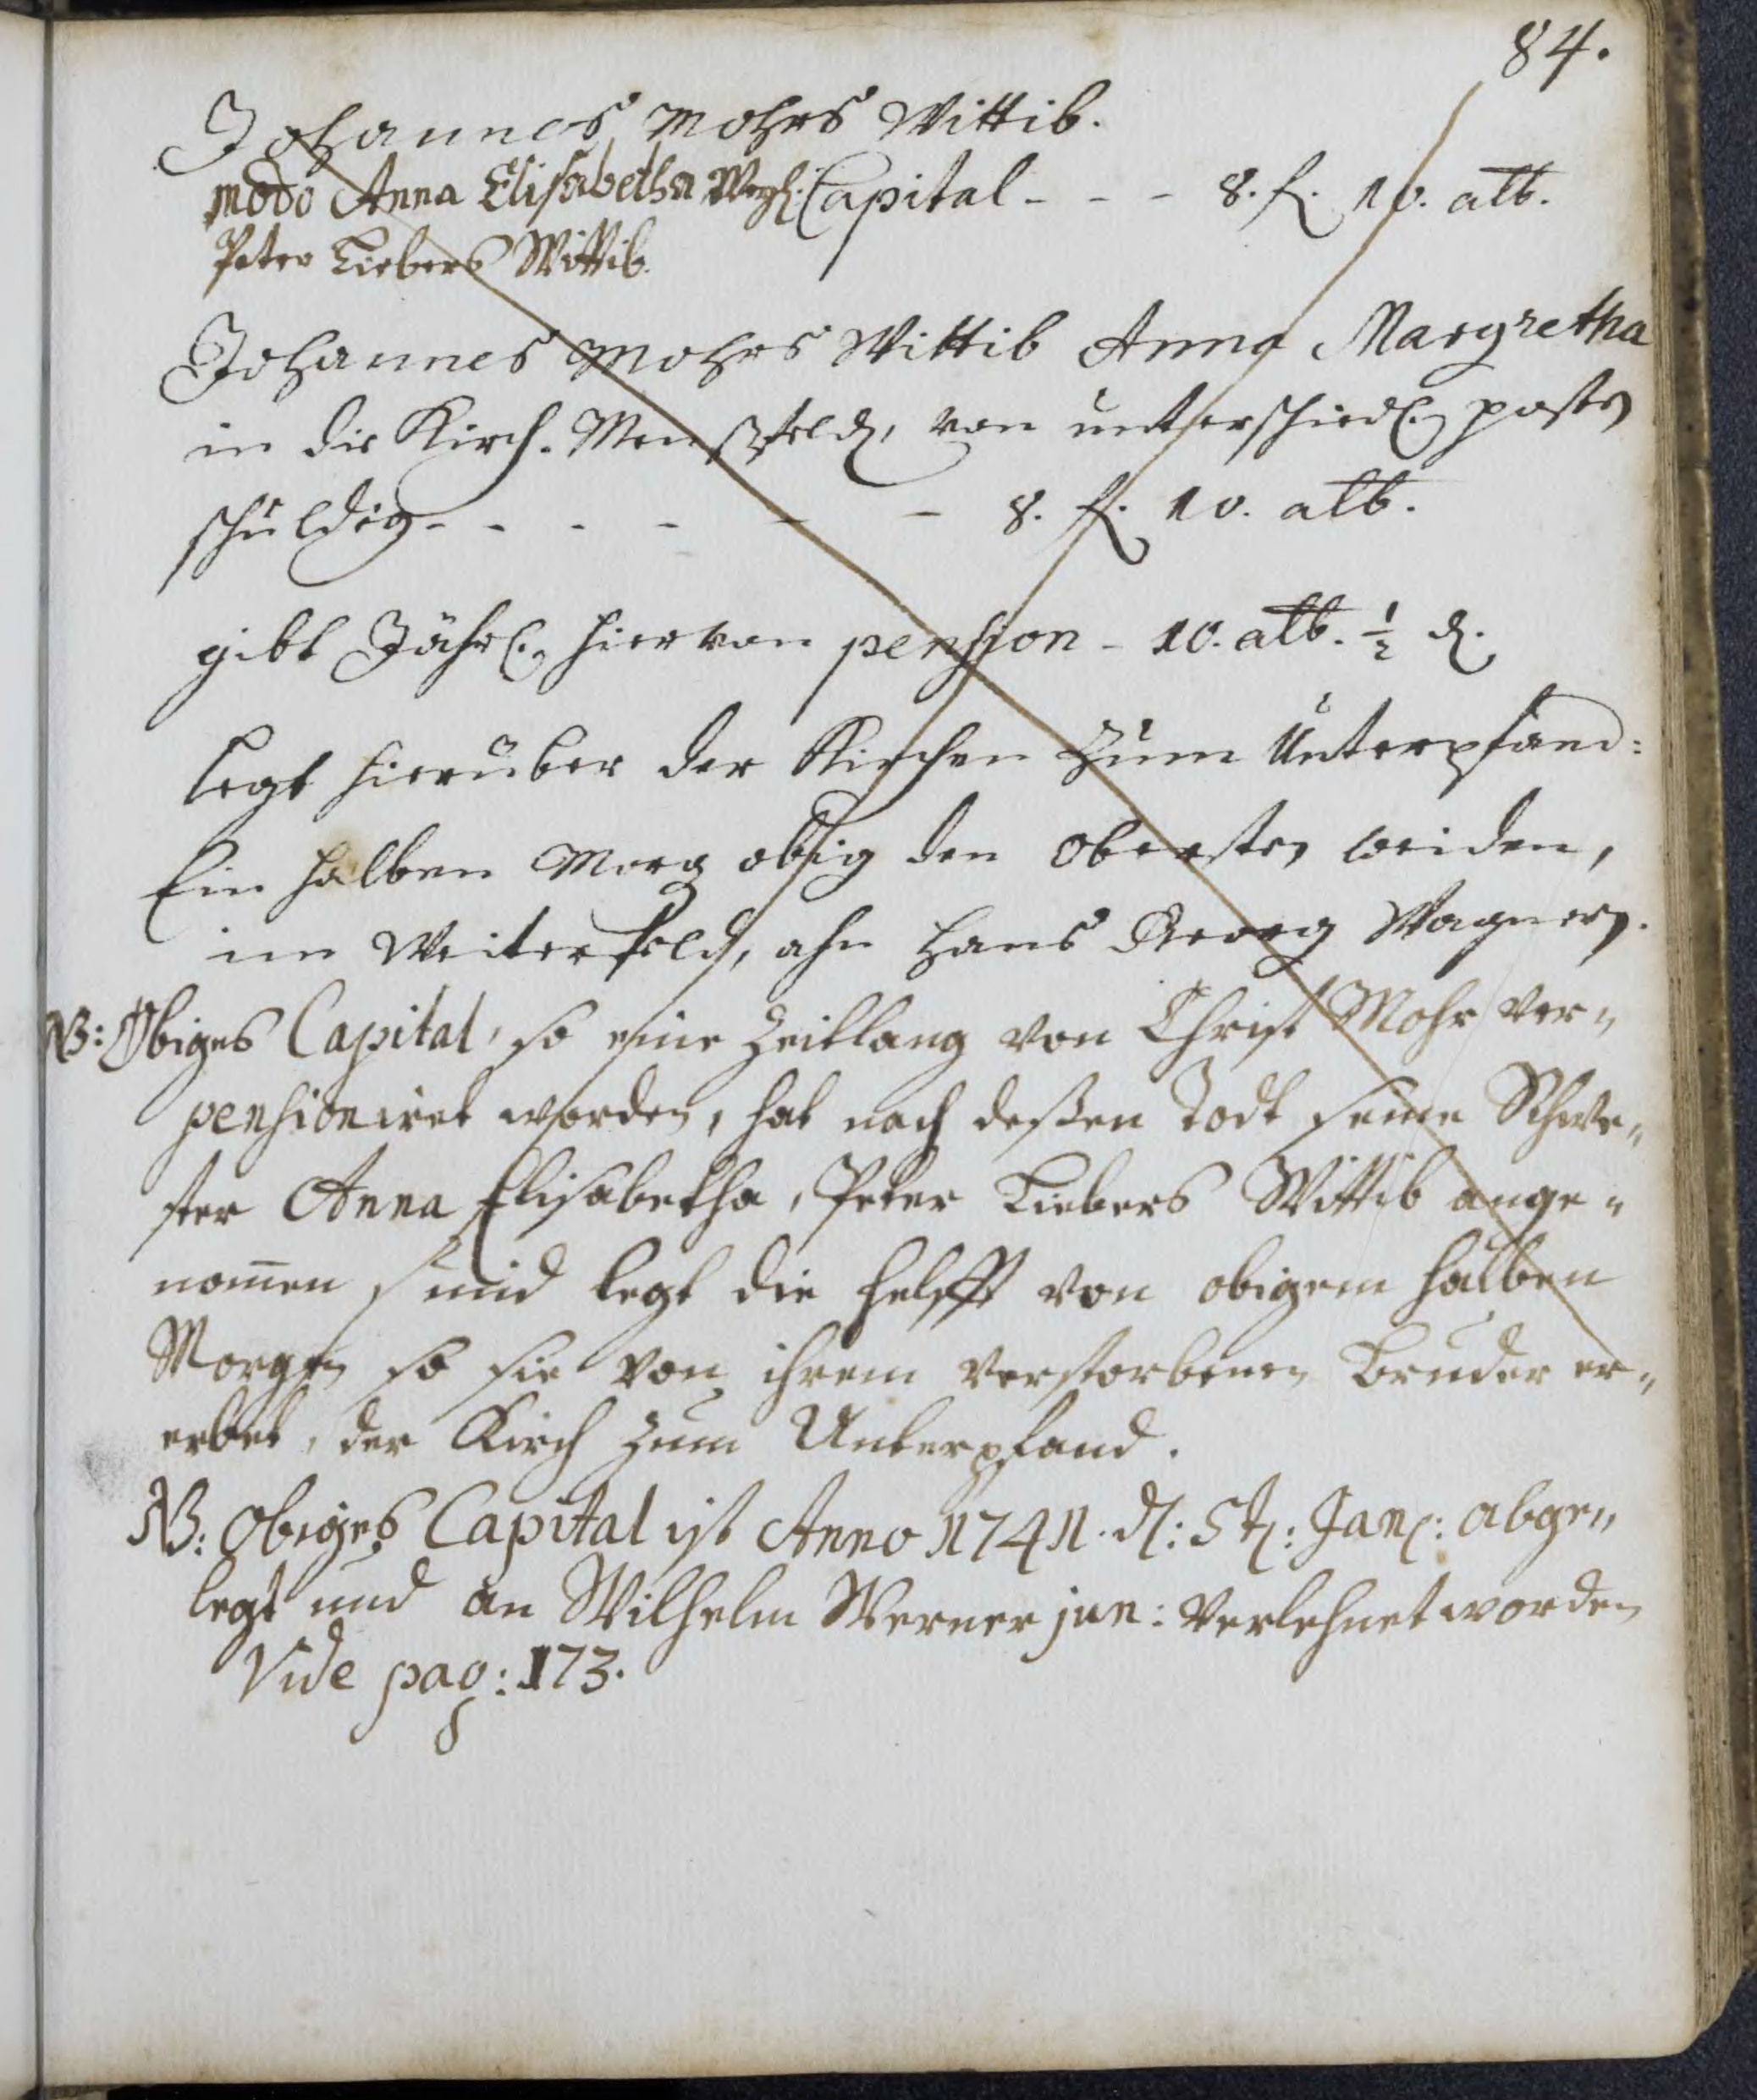 84.
Johannes Mohrs Wittib.
modo Anna Elisabetha Capital - - - 8. fl. 10. alb.
Peter Liebers Wittib.
Johannes Mohrs Wittib Anna Margretha
in die Kirch. Menßfeld, von unterschiedl. posten
schuldig - - - - - - 8. fl. 10. alb.
gibt Jährl. hiervon pension - 10. alb. ½ d.
legt hierüber der Kirchen zum Unterpfand:
Ein halben Morg obig den obersten weiden,
im Weiterfeld, ahn Hans Georg Wagnern.
NB: Obiges Capital, so eine Zeitlang von Christ Mohr ver„
pensioniret worden, hat nach deßen Todt seine Schwe„
ster Anna Elisabetha, Peter Liebers Wittib ange„
nom̄en, und legt die helfft von obigem halben
Morgen so sie von ihrem verstorbenen Bruder er„
erbet, der Kirch zum Unterpfand.
NB: Obiges Capital ist Anno 1741. d: 5t: Jan: abge„
legt und an Wilhelm Werner jun: verlehnet worden
Vide pag: 173.